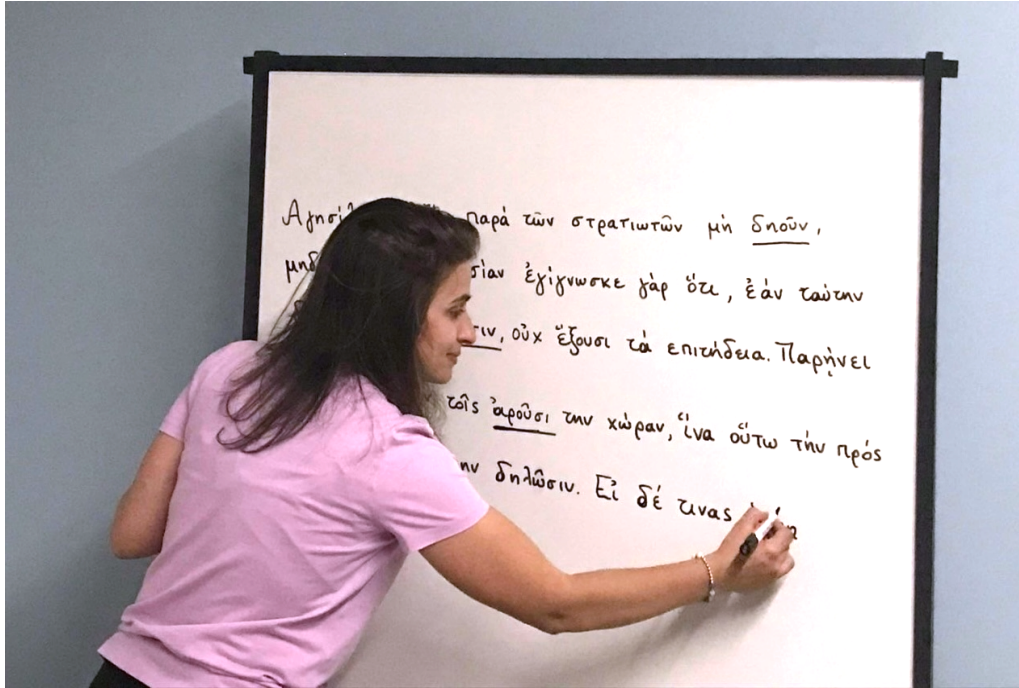 παρά τῶν στρατιωτῶν μή δηοῦν,
ἐγίγνωσκε γάρ ὅτι, ἐάν ταύτην
οὐχ ἕξουσι τά επιτήδεια. Παρῄνει
τοῖς ἀροῦσι την χώραν, ἵνα οὕτω τήν πρός
δηλῶσιν. Εἰ δέ τινας